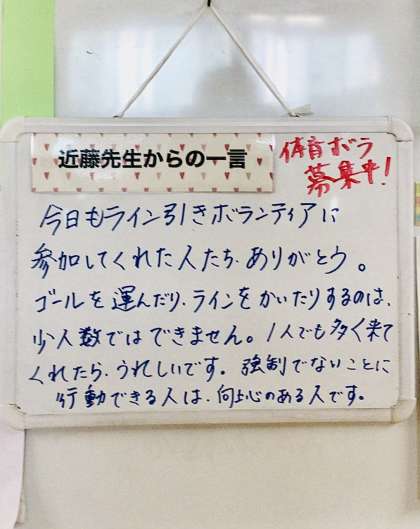 近藤先生からの一言
体育ボラ
募集中!
今日もライン引きボランティアに
参加してくれた人たち、ありがとう。
ゴールを運んだり、ラインをかいたりするのは、
少人数ではできません。1人でも多く来て
くれたら、うれしいです。強制でないことに
行動できる人は、向上心のある人です。